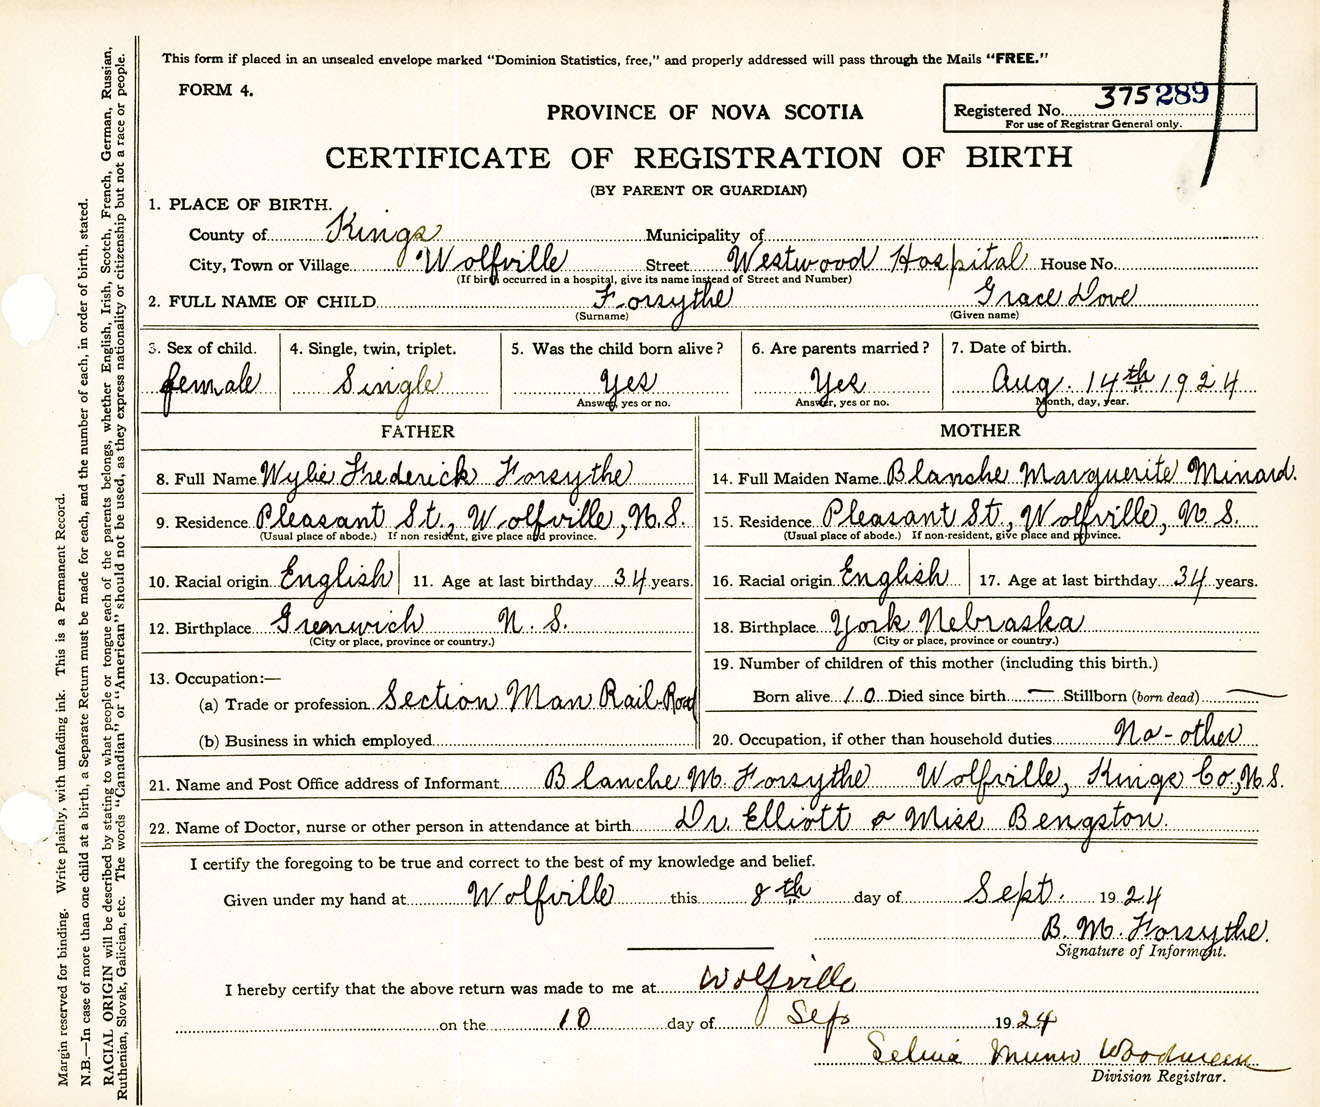 This form if placed in an unsealed envelope marked "Dominion Statistics, free," and properly addressed will pass through the Mails "FREE."
FORM 4.
375289
Registered No.
For use of Registrar General only.
PROVINCE OF NOVA SCOTIA
CERTIFICATE OF REGISTRATION OF BIRTH
(BY PARENT OR GUARDIAN)
1. PLACE OF BIRTH.
County of Kings Municipality of
City, Town or Village Wolfville Street Westwood Hospital House No.
(If birth occurred in a hospital, give its name instead of Street and Number)
2. FULL NAME OF CHILD Forsythe Grace Dove
(Surname) (Given name)
3. Sex of child. 4. Single, twin, triplet. 5. Was the child born alive? 6. Are parents married? 7. Date of birth.
female Single Yes Yes Aug. 14th 1924
Answer, yes or no. Answer, yes or no. Month, day, year.
FATHER MOTHER
8. Full Name Wylie Frederick Forsythe 14. Full Maiden Name Blanche Marguerite Minard.
9. Residence Pleasant St., Wolfville, N.S. 15. Residence Pleasant St., Wolfville, N S.
(Usual place of abode.) If non resident, give place and province. (Usual place of abode.) If non-resident, give place and province.
10. Racial origin English 11. Age at last birthday 34 years. 16. Racial origin English 17. Age at last birthday 34 years.
12. Birthplace Grenwich N. S. 18. Birthplace York Nebraska
(City or place, province or country.) (City or place, province or country.)
13. Occupation:— 19. Number of children of this mother (including this birth.)
(a) Trade or profession Section Man Rail-Road Born alive 10 Died since birth — Stillborn (born dead) —
(b) Business in which employed 20. Occupation, if other than household duties No-other
21. Name and Post Office address of Informant Blanche M. Forsythe Wolfville, Kings Co., N.S.
22. Name of Doctor, nurse or other person in attendance at birth Dr. Elliott & Miss Bengston.
I certify the foregoing to be true and correct to the best of my knowledge and belief.
Given under my hand at Wolfville this 8th day of Sept. 1924
B. M. Forsythe.
Signature of Informant.
I hereby certify that the above return was made to me at Wolfville
on the 10 day of Sep 1924
Munro
Division Registrar.
Margin reserved for binding. Write plainly, with unfading ink. This is a Permanent Record.
N.B.—In case of more than one child at a birth, a Separate Return must be made for each, and the number of each, in order of birth, stated.
RACIAL ORIGIN will be described by stating to what people or tongue each of the parents belongs, whether English, Irish, Scotch, French, German, Russian,
Ruthenian, Slovak, Galician, etc. The words "Canadian" or "American" should not be used, as they express nationality or citizenship but not a race or people.